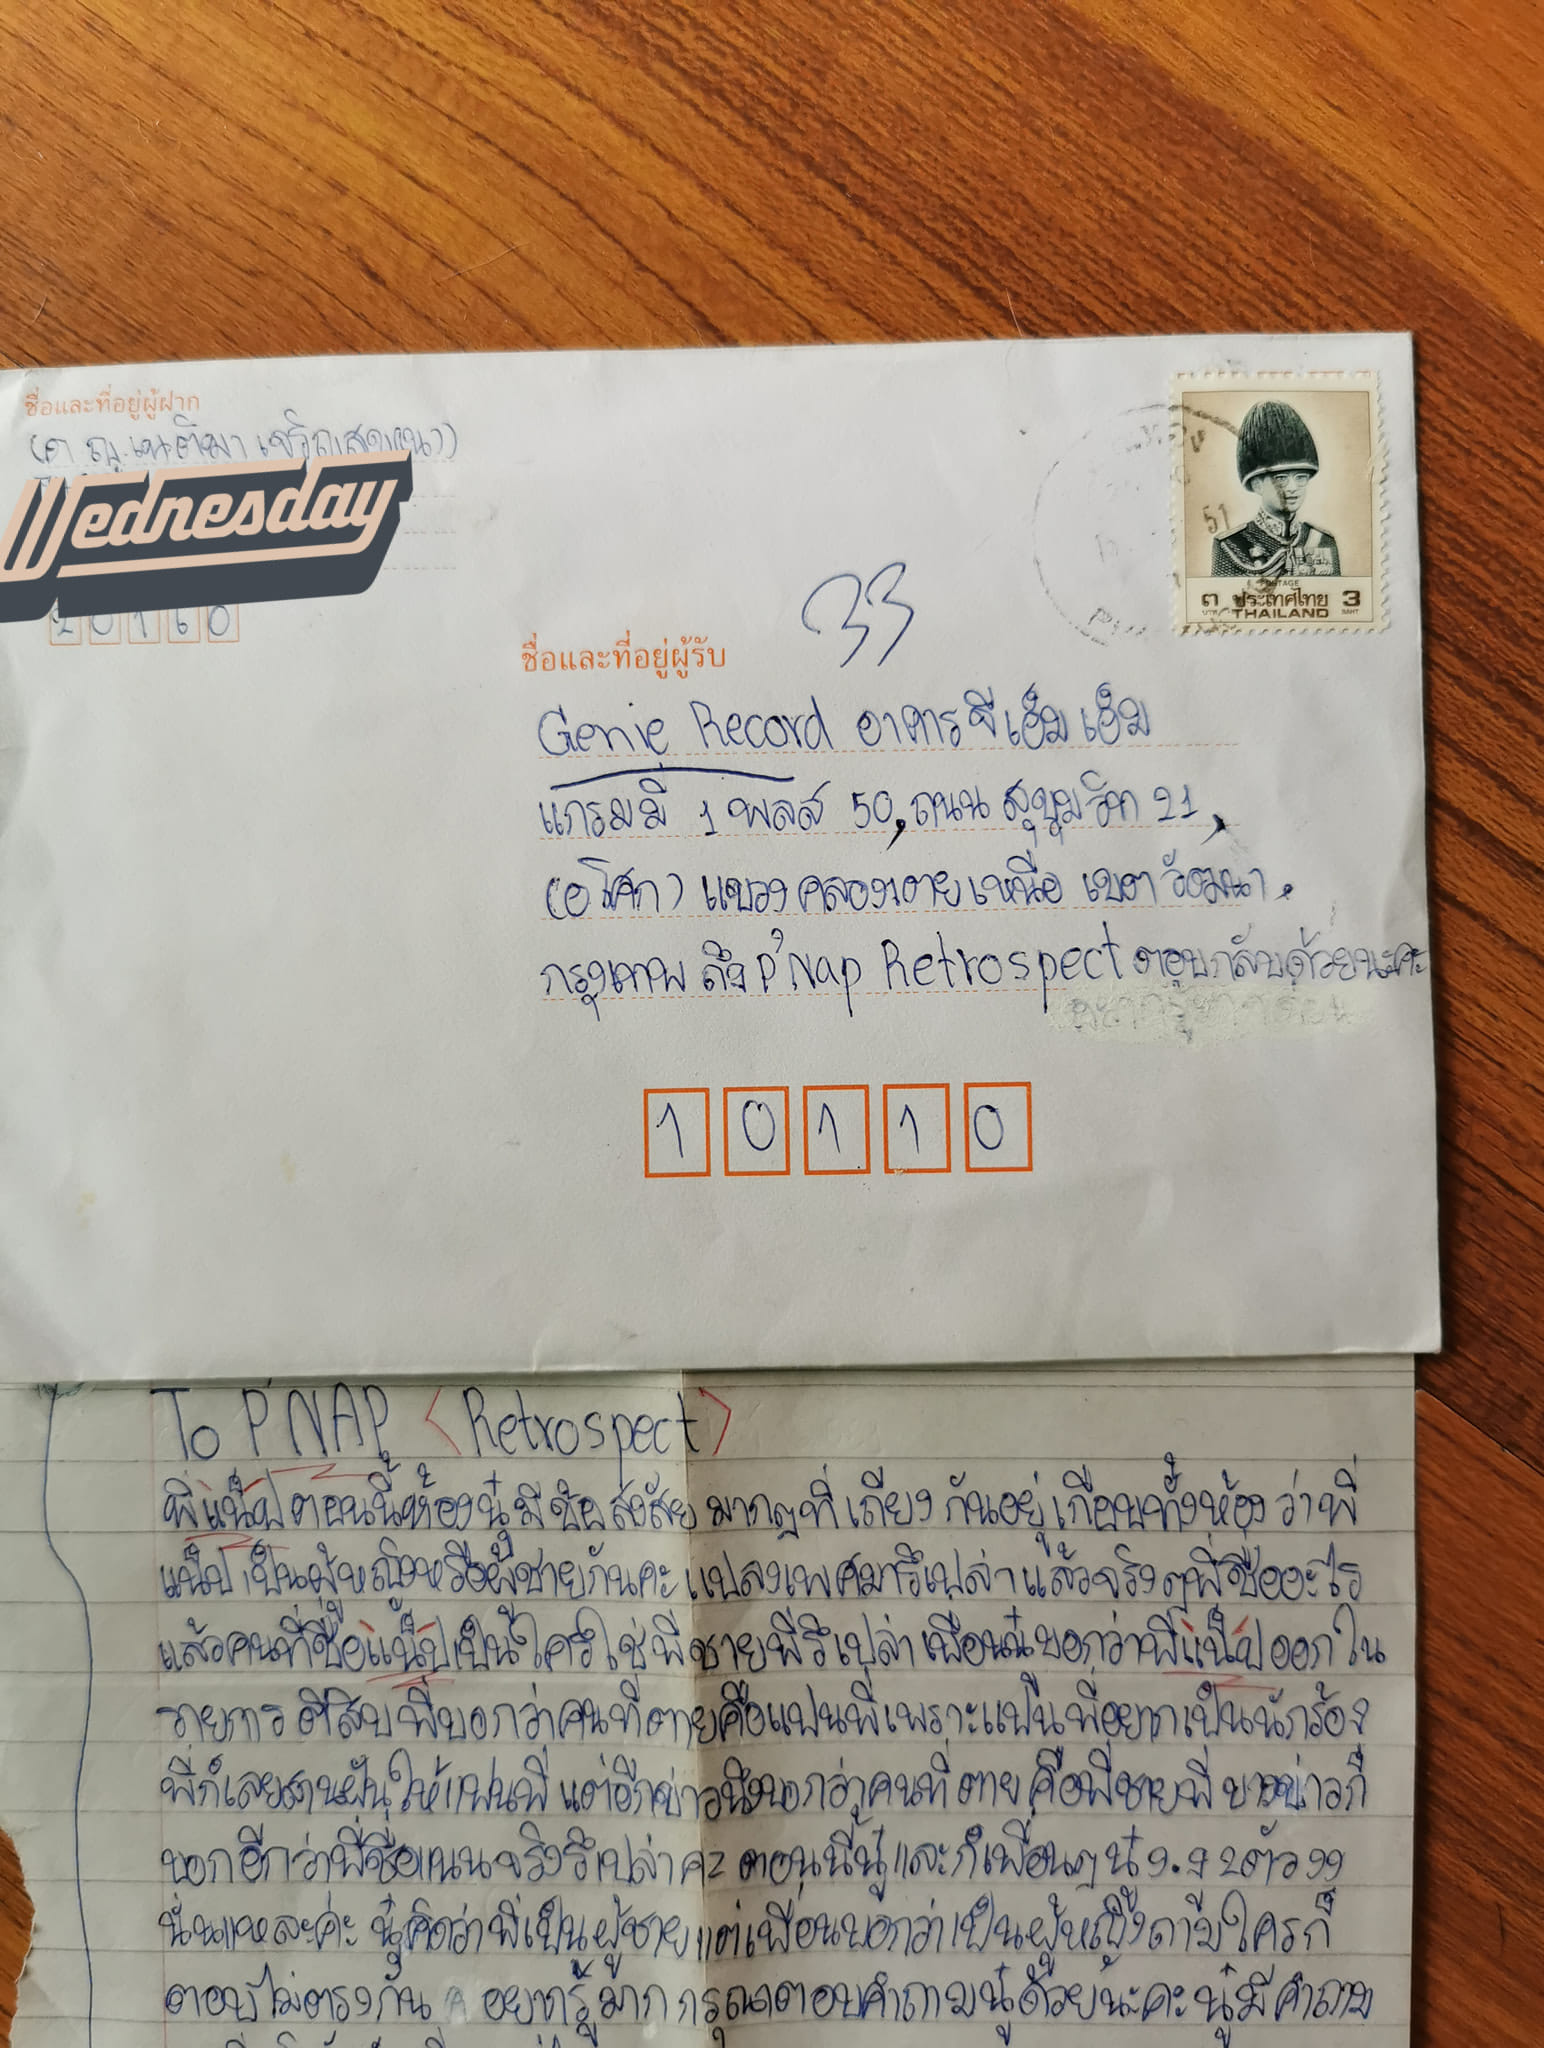 ชื่อและที่อยู่ผู้ฝาก
Wednesday
20160
51
POSTAGE
๓ ประเทศไทย 3
บาท THAILAND BAHT
33
ชื่อและที่อยู่ผู้รับ
Genie Record อาคารจีเอ็มเอ็ม
แกรมมี่ 1 พลส 50, ถนน สุขุมวิท 21,
(อโศก) แขวงคลองเตยเหนือ เขต วัฒนา.
กรุงเทพ ถึง P'Nap Retrospect ตอบกลับด้วยนะคะ
10110
To P'NAP <Retrospect>
พี่แน็ปตอนนี้ห้องนู๋มีข้อสงสัยมากๆที่เถียงกันอยู่เกือบทั้งห้องว่าพี่
แน็ปเป็นผู้หญิงหรือผู้ชายกันคะแปลงเพศมารึเปล่าแล้วจริงๆพี่ชื่ออะไร
แล้วคนที่ชื่อแน็ปเป็นใครใช่พี่ชายพี่รึเปล่าเพื่อนนู๋บอกว่าพี่แน็ปออกใน
รายการตีสิบพี่บอกว่าคนที่ตายคือแฟนพี่เพราะแฟนพี่อยากเป็นนักร้อง
พี่ก็เลยสานฝันให้แฟนพี่ แต่อีกข่าวนึงบอกว่าคนที่ตาย คือพี่ชายพี่ บางข่าวก็
บอกอีกว่าพี่ชื่อแนนจริงรึเปล่าคะ ตอนนี้นู๋และก็เพื่อนๆนู๋ ง.ง 2ตัว งง
นั่นแหละค่ะ นู๋คิดว่าพี่เป็นผู้ชายแต่เพื่อนบอกว่าเป็นผู้หญิงถามใครก็
ตอบไม่ตรงกัน อยากรู้มาก กรุณาตอบคำถามนู๋ด้วยนะคะ นู๋มีคำถาม